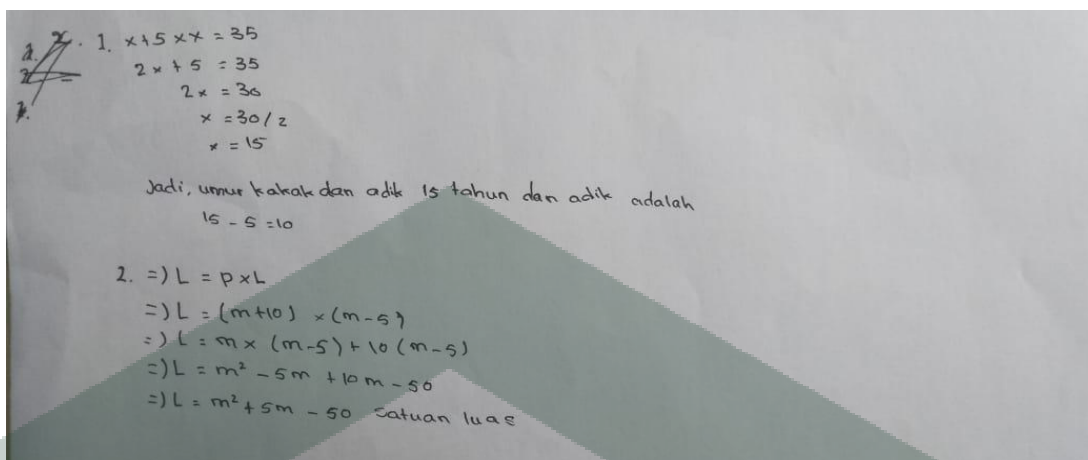 1. x+5 x x = 35
2x + 5 = 35
2x = 30
x = 30/2
x = 15
Jadi, umur kakak dan adik 15 tahun dan adik adalah
15 - 5 = 10
2. =) L = p x L
=) L = (m+10) x (m-5)
=) L = m x (m-5) + 10 (m-5)
=) L = m² - 5m + 10m - 50
=) L = m² + 5m - 50 satuan luas